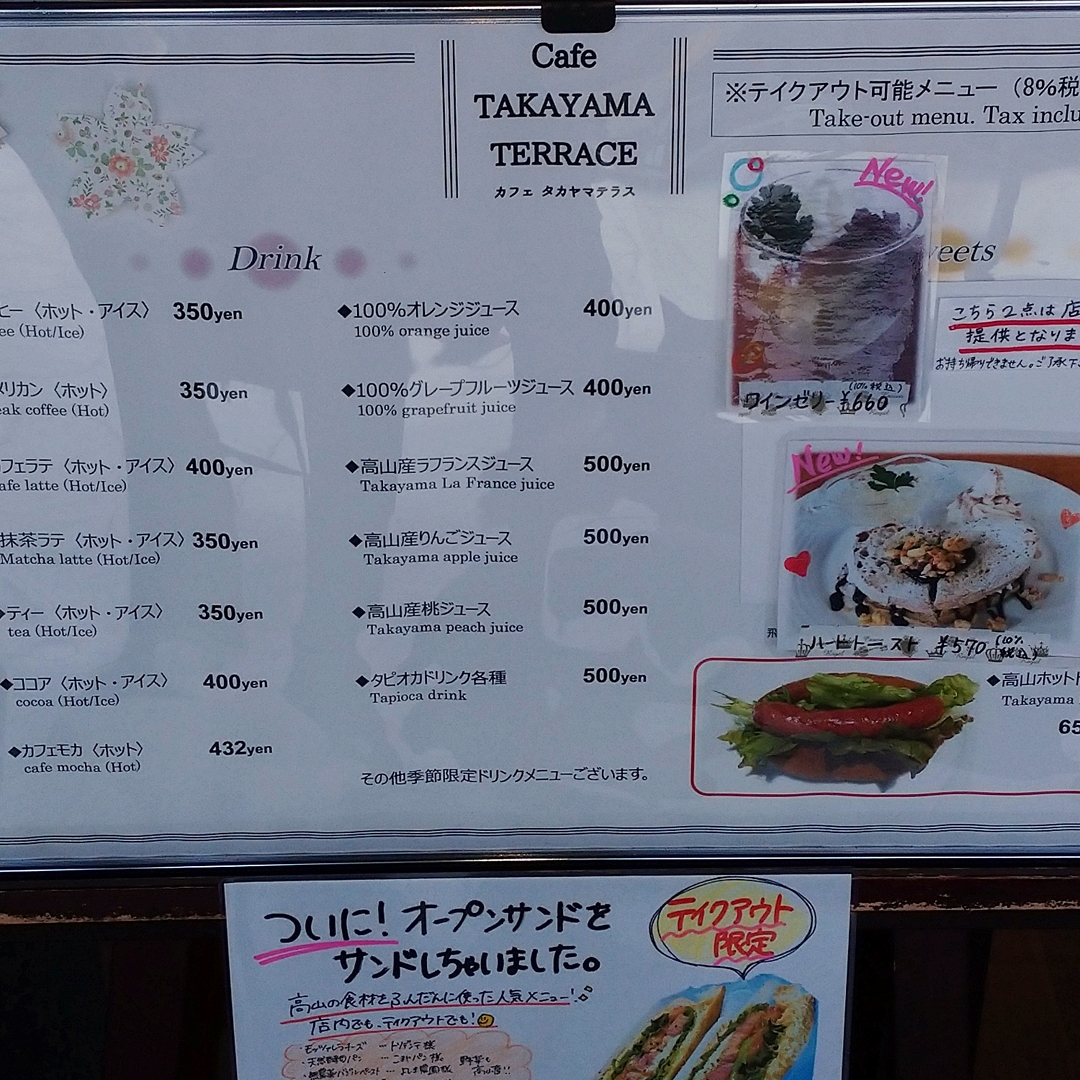 Cafe
TAKAYAMA
TERRACE
カフェ タカヤマテラス
※テイクアウト可能メニュー（8%税
Take-out menu. Tax inclu
Drink
ヒー〈ホット・アイス〉 350yen
ee (Hot/Ice)
メリカン〈ホット〉 350yen
eak coffee (Hot)
フェラテ〈ホット・アイス〉 400yen
afe latte (Hot/Ice)
抹茶ラテ〈ホット・アイス〉 350yen
Matcha latte (Hot/Ice)
◆ティー〈ホット・アイス〉 350yen
tea (Hot/Ice)
◆ココア〈ホット・アイス〉 400yen
cocoa (Hot/Ice)
◆カフェモカ〈ホット〉 432yen
cafe mocha (Hot)
◆100%オレンジジュース 400yen
100% orange juice
◆100%グレープフルーツジュース 400yen
100% grapefruit juice
◆高山産ラフランスジュース 500yen
Takayama La France juice
◆高山産りんごジュース 500yen
Takayama apple juice
◆高山産桃ジュース 500yen
Takayama peach juice
◆タピオカドリンク各種 500yen
Tapioca drink
その他季節限定ドリンクメニューございます。
weets
New!
(10%税込)
ワインゼリー ¥660
こちら2点は店
提供となりま
お持ち帰りできません。ご了承下
New!
ハニートースト ¥570 (10%税込)
飛
◆高山ホット
Takayama
65
ついに!オープンサンドを
サンドしちゃいました。
テイクアウト
限定
高山の食材をふんだんに使った人気メニュー!
店内でも、テイクアウトでも!